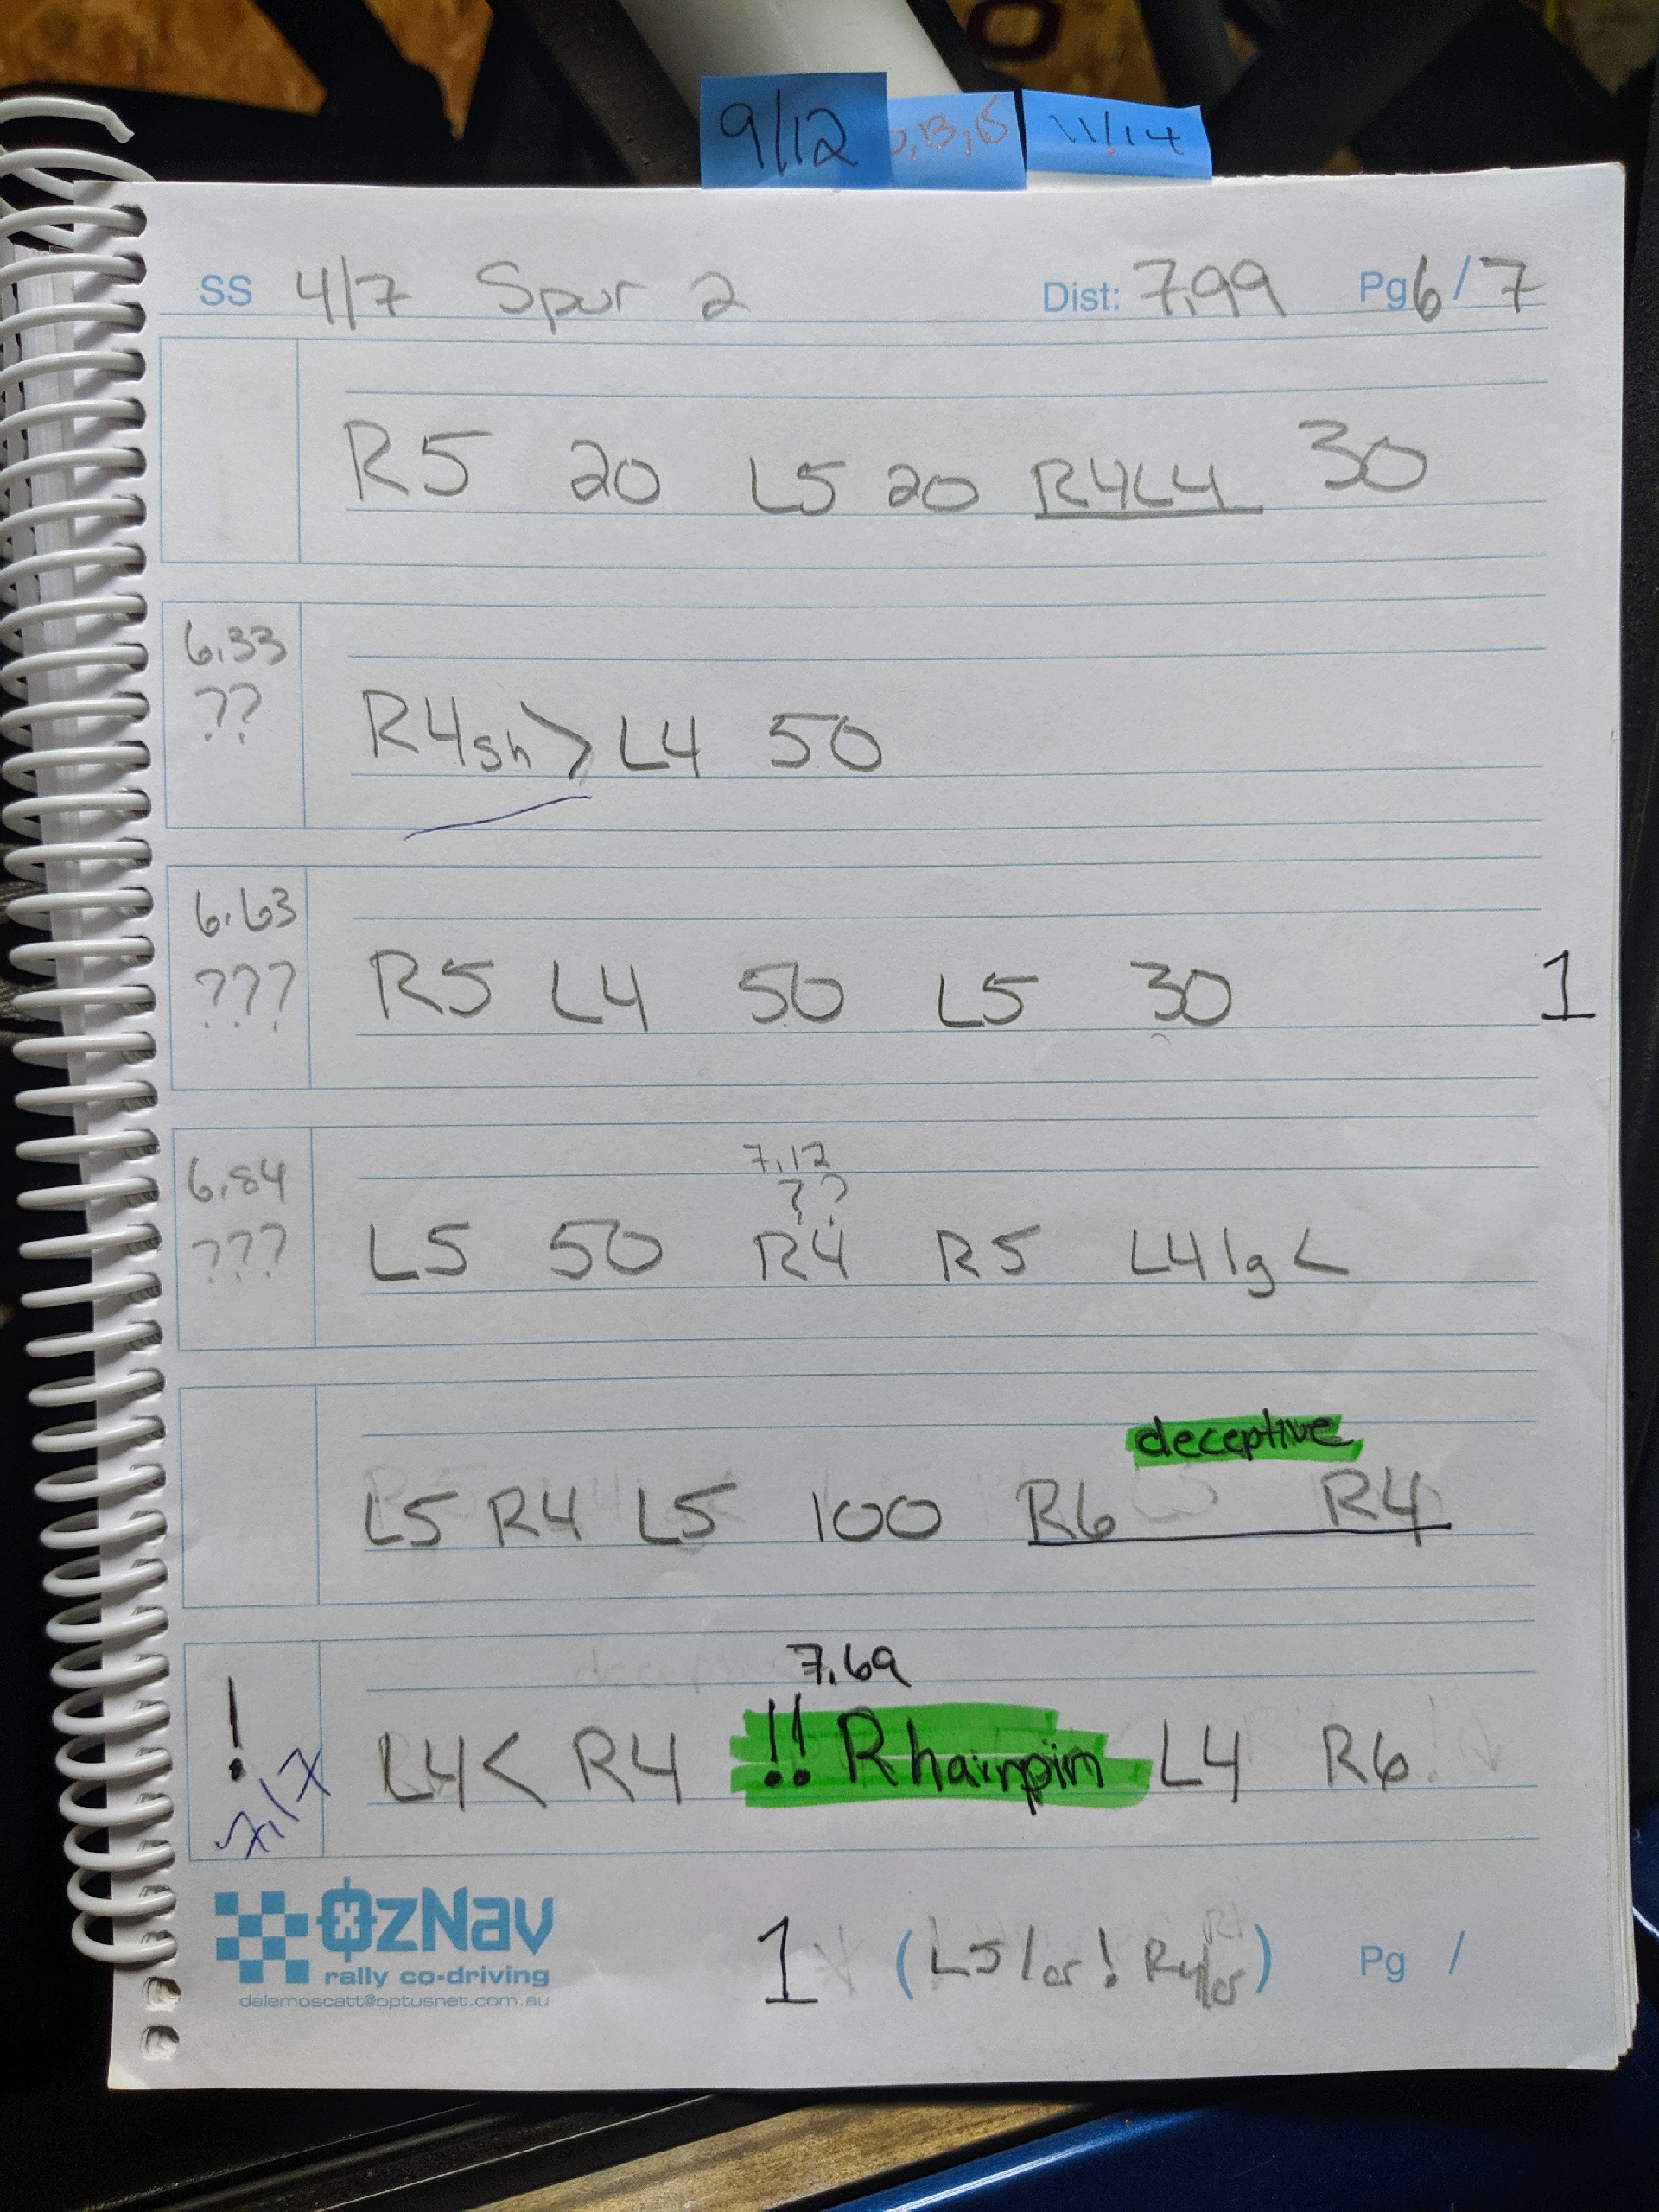 9/12 ,13,15 11/14
SS 4/7 Spur 2 Dist: 7.99 Pg 6/7
R5 20 L5 20 R4L4 30
6.33
??
R4sh > L4 50
6.63
???
R5 L4 50 L5 30
1
6.84
???
7.12
??
L5 50 R4 R5 L4 lg <
deceptive
L5 R4 L5 100 R6 R4
7.69
!
L4 < R4 !! R hairpin L4 R6
OzNav
rally co-driving
dalemoscatt@optusnet.com.au
1 (L5/cr! ) Pg /